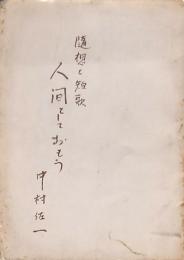 随想と短歌
人間としておもう
中村佐一